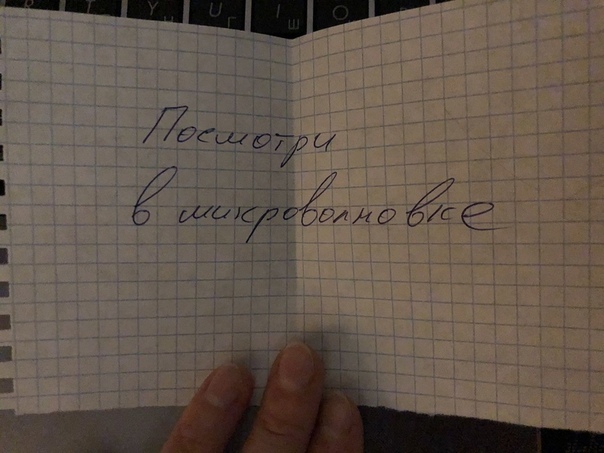 T Y U I O
Г Ш
Посмотри
в микроволновке